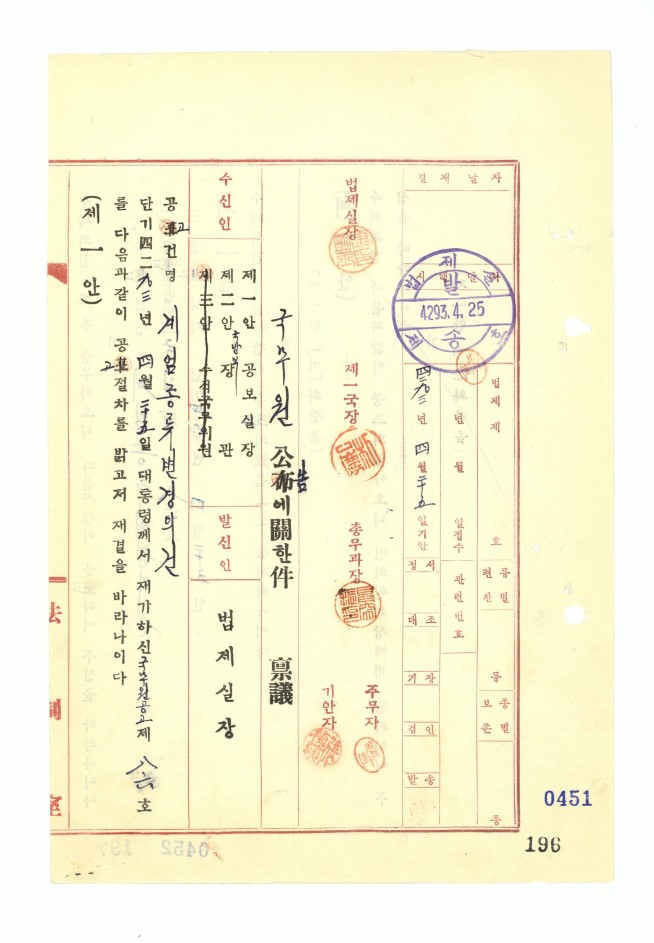 결재날자
법제제 호
년 월 일접수
관련번호
편친 류별
보존 종별
류
종
四二九三년 四월 二十五일기안
정서
대조
기장
검인
발송
법제실
발송
4293.4.25
법제실장
제一국장
총무과장
주무자
기안자
국무원 公布에關한件 稟議
告
수신인
제一안 공보실장
제二안 국방부장관
제三안 수석국무위원
발신인
법제실장
공포건명 계엄종류변경의건
고
단기四二九三년 四월 二十五일 대통령께서 재가하신국무원공고제 八六호
를 다음과같이 공포절차를 밝고저 재결을 바라나이다
고
(제一안)
法制室
0451
196
0452
197